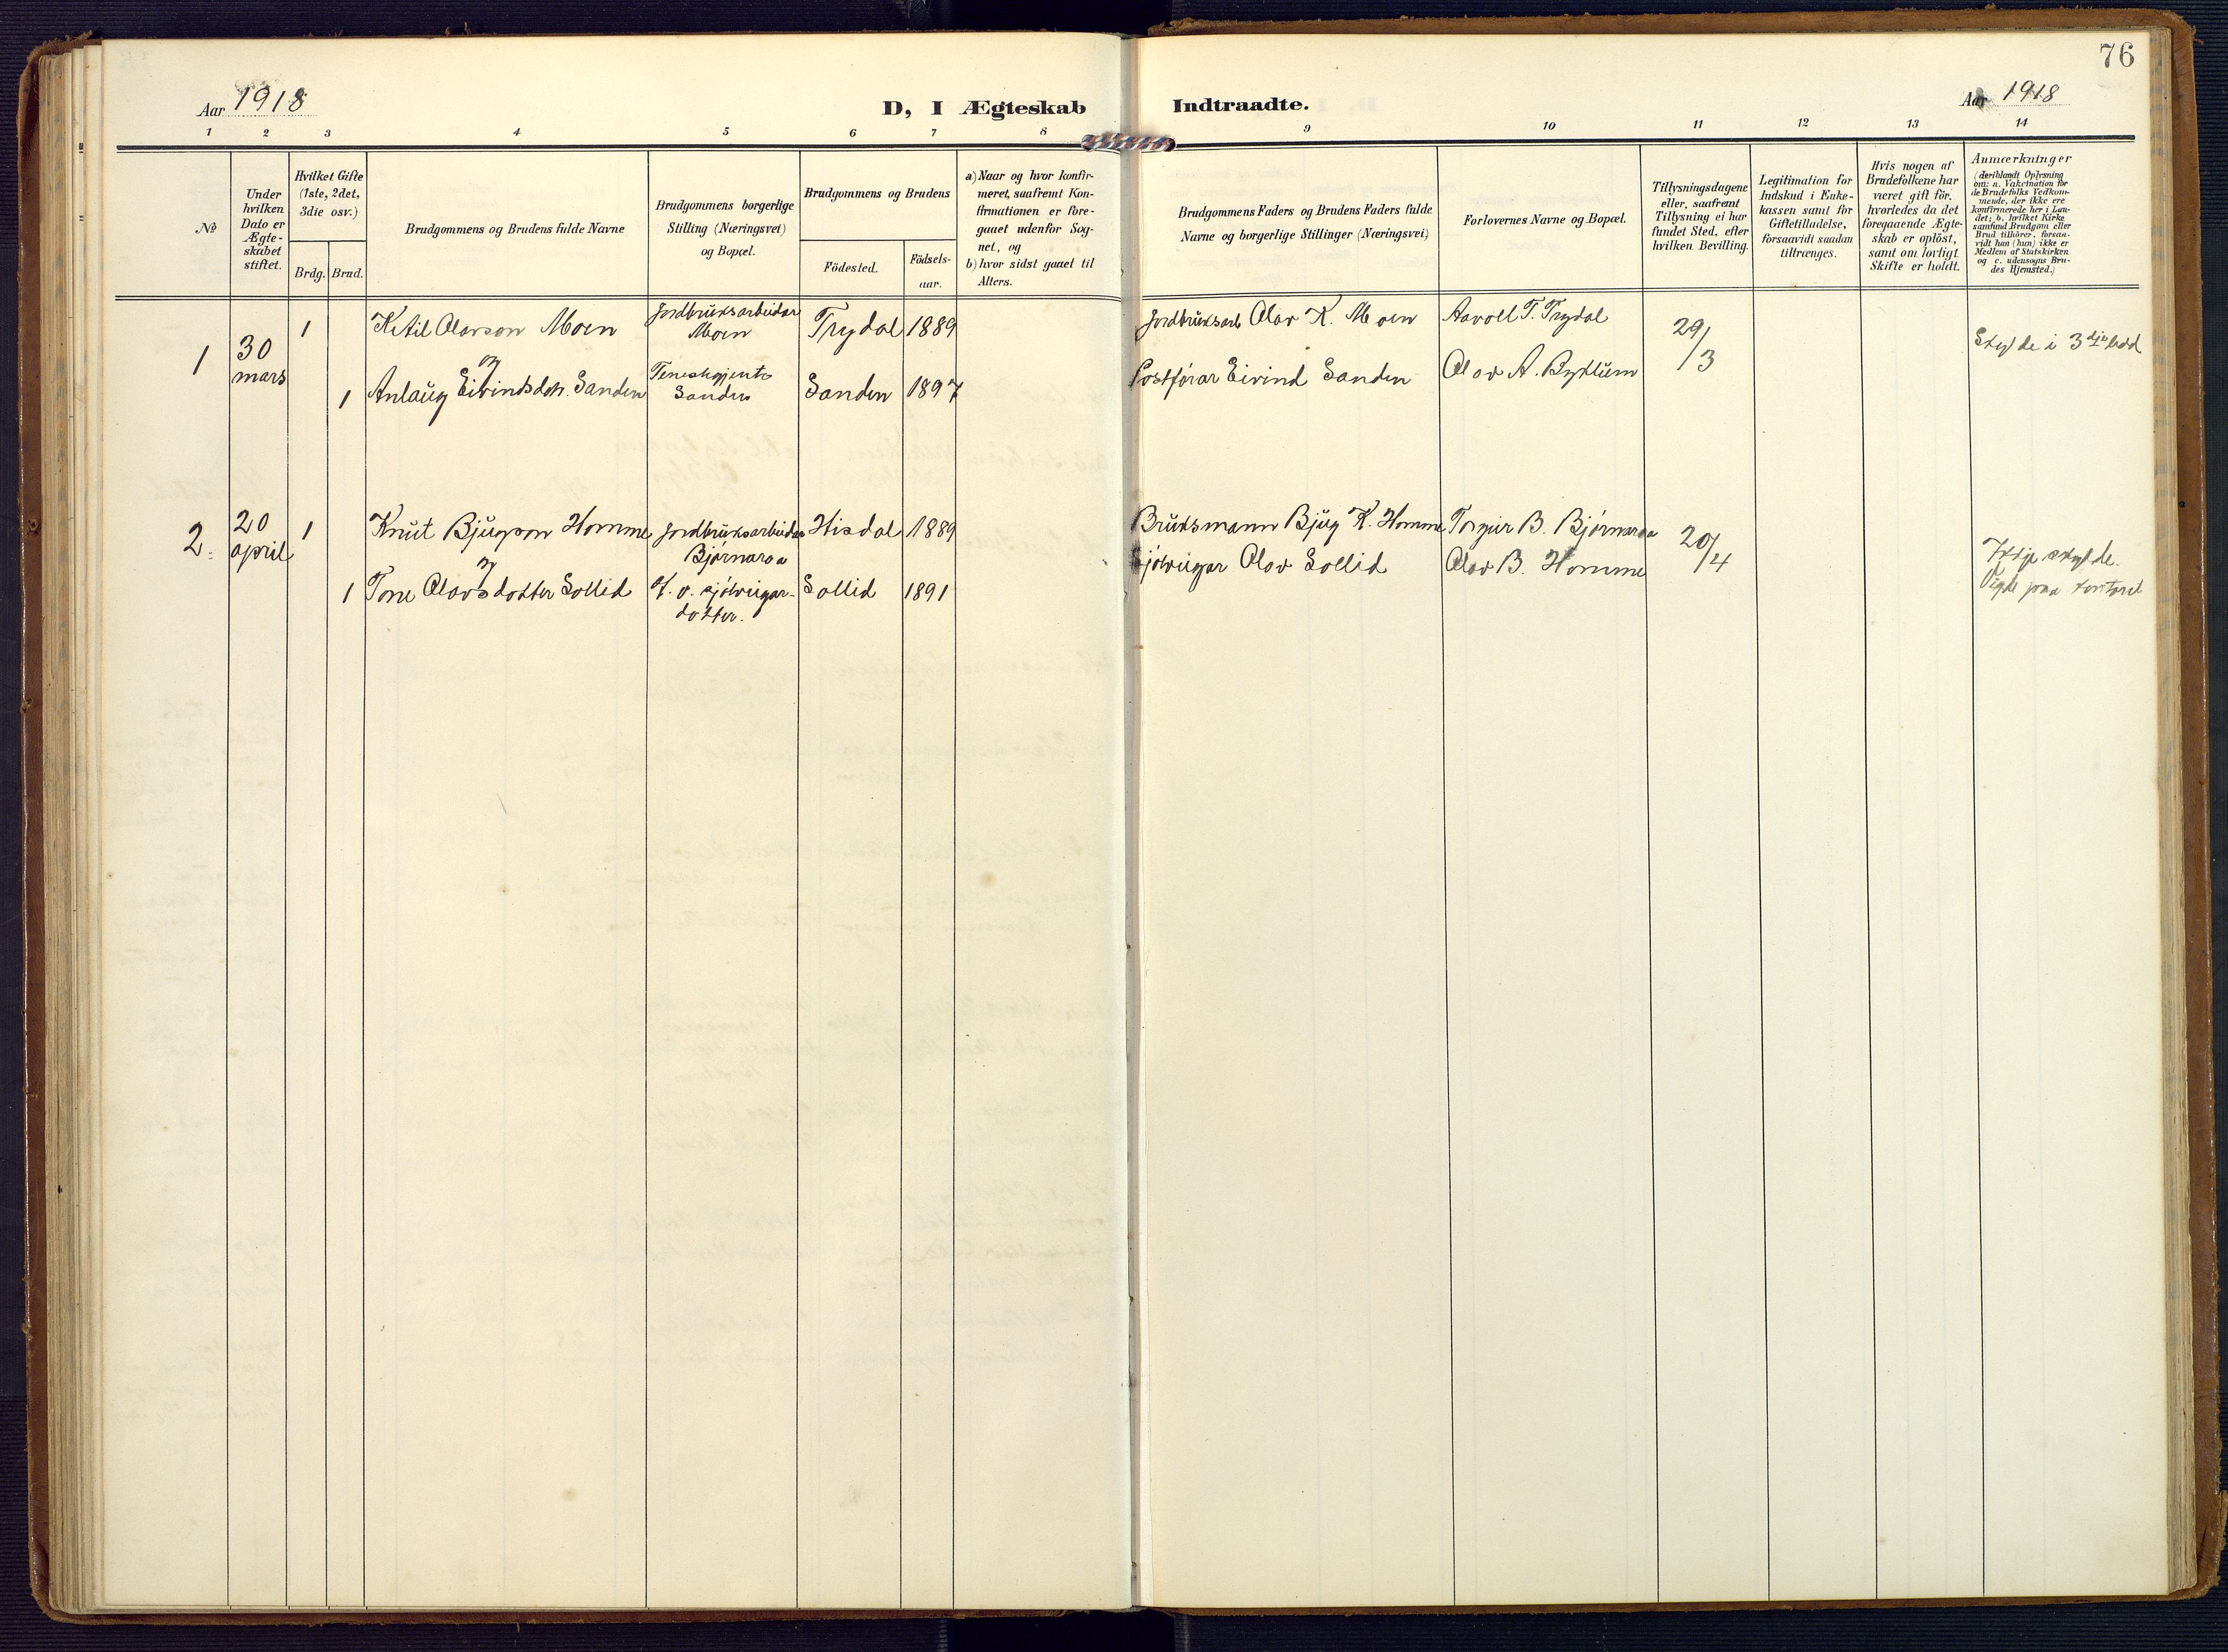 76
Aar 1918
D, I Ægteskab Indtraadte.
Aar 1918
1 2 3 4 5 6 7 8 9 10 11 12 13 14
No
Under
hvilken
Dato er
Ægte-
skabet
stiftet.
Hvilket Gifte
(1ste, 2det,
3die osv.)
Brdg. Brud.
Brudgommens og Brudens fulde Navne
Brudgommens borgerlige
Stilling (Næringsvei)
og Bopæl.
Brudgommens og Brudens
Födested.
Födsels-
aar.
a) Naar og hvor konfir-
meret, saafremt Kon-
firmationen er fore-
gaaet udenfor Sog-
net, og
b) hvor sidst gaaet til
Alters.
Brudgommens Faders og Brudens Faders fulde
Navne og borgerlige Stillinger (Næringsvei)
Forlovernes Navne og Bopæl.
Tillysningsdagene
eller, saafremt
Tillysning ei har
fundet Sted, efter
hvilken Bevilling.
Legitimation for
Indskud i Enke-
kassen samt for
Giftetilladelse,
forsaavidt saadan
tiltrænges.
Hvis nogen af
Brudefolkene har
været gift för,
hvorledes da det
foregaaende Ægte-
skab er oplöst,
samt om lovligt
Skifte er holdt.
Anmærkninger
(deriblandt Oplysning
om: a. Vakcination for
de Brudefolks Vedkom-
mende, der ikke ere
konfirmerede her i Lan-
det; b. hvilket Kirke
samfund Brudgom eller
Brud tilhörer, forsaa-
vidt han (hun) ikke er
Medlem af Statskirken
og c. udensogns Bru-
des Hjemsted.)
1
30
mars
1
Ketil Olavson Moen
Jordbruksarbeidar
Moen
Trydal 1889
Jordbruksarb Olav K. Moen
Aavoll T. Trydal
29/3
Skylde i 3dje ledd
og
1
Anlaug Eivindsdtr. Sanden
Teneskgjente
Sanden
Sanden 1897
Postförar Eivind Sanden
Olav A. Bydlum
2.
20
april
1
Knut Bjugson Homme
Jordbruksarbeidar
Björnaraa
Hisdal 1889
Bruksmann Bjug K. Homme
Torgeir B. Björnaraa
20/4
Ikkje skylde.
Vigde paa kontoret
og
1
Tone Olavsdotter Sollid
sjölveigar-
dotter.
Sollid 1891
Sjölveigar Olav Sollid
Olav B. Homme